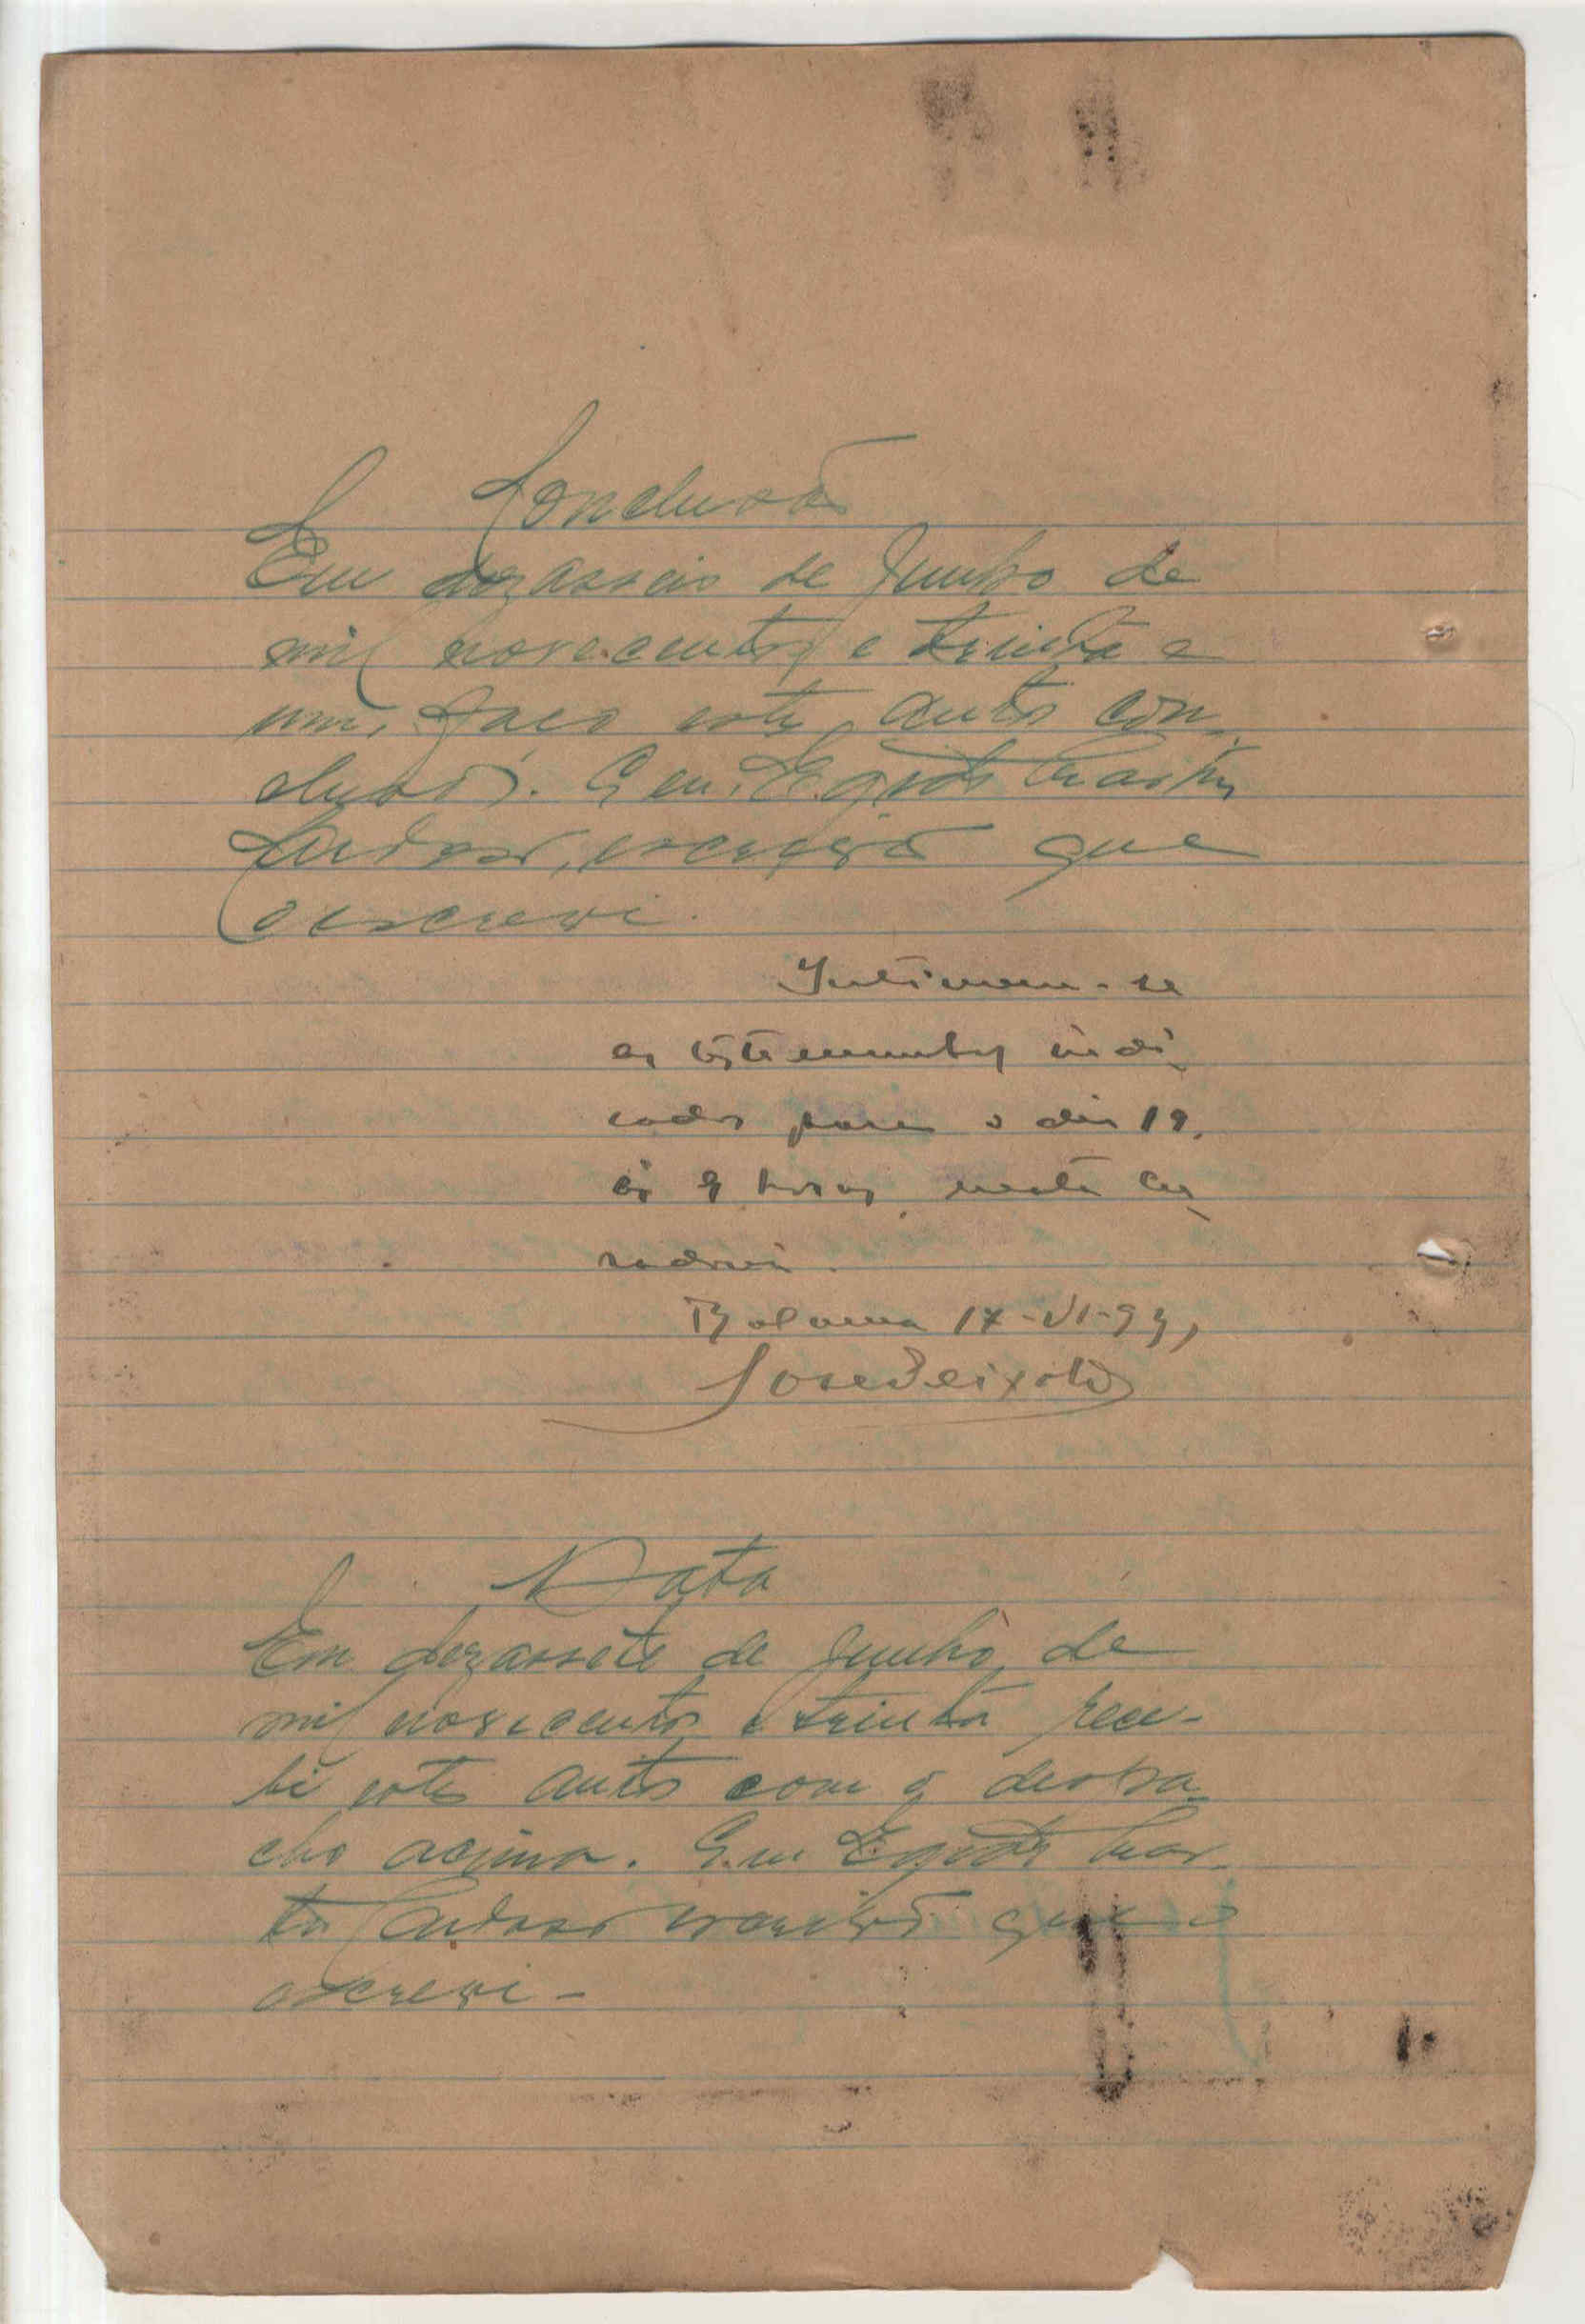 Conclusão
Em dezasseis de Junho de
mil novecentos e trinta e
um, faço estes autos con-
clusos. E eu,
Cardoso, escrivão que
o escrevi.
Intimem-se
as testemunhas indi-
cadas para o dia 19,
ás 9 horas, nesta Cu-
radoria.
Bolama 17-VI-931
José Peixoto
Data
Em dezassete de Junho de
mil novecentos e trinta rece-
bi estes autos com o despa-
cho acima. E eu
Cardoso escrivão que o
escrevi -